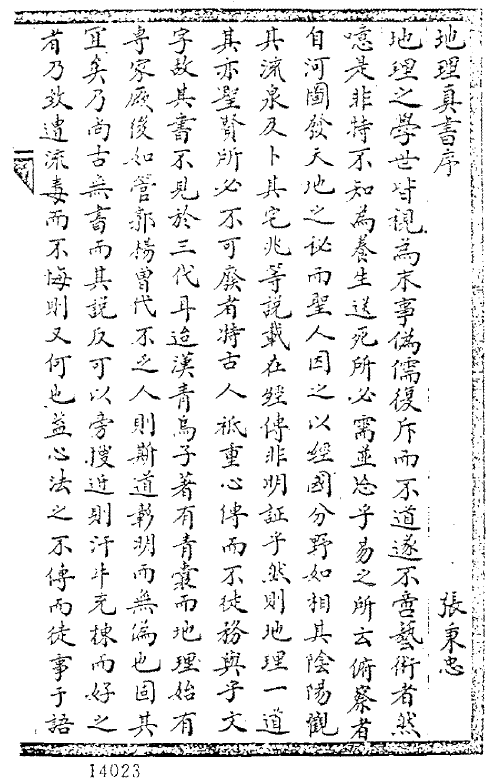 地理真書序 張秉忠
地理之學世皆視為末事偽儒復斥而不道遂不啻藝術者然
噫是非特不知為養生送死所必需並忘乎易之所云俯察者
自河圖發天地之秘而聖人因之以經國分野如相其陰陽觀
其流泉及卜其宅兆等說載在經傳非明証乎然則地理一道
其亦聖賢所必不可廢者特古人祇重心傳而不徒務與乎文
字故其書不見於三代耳迨漢青烏子著有青囊而地理始有
專家厥後如管郭楊曾代不乏人則斯道彰明而無偽也固其
宜矣乃尚古無書而其說反可以旁搜近則汗牛充棟而好之
者乃致遺流毒而不悔則又何也蓋心法之不傳而徒事于語
14023